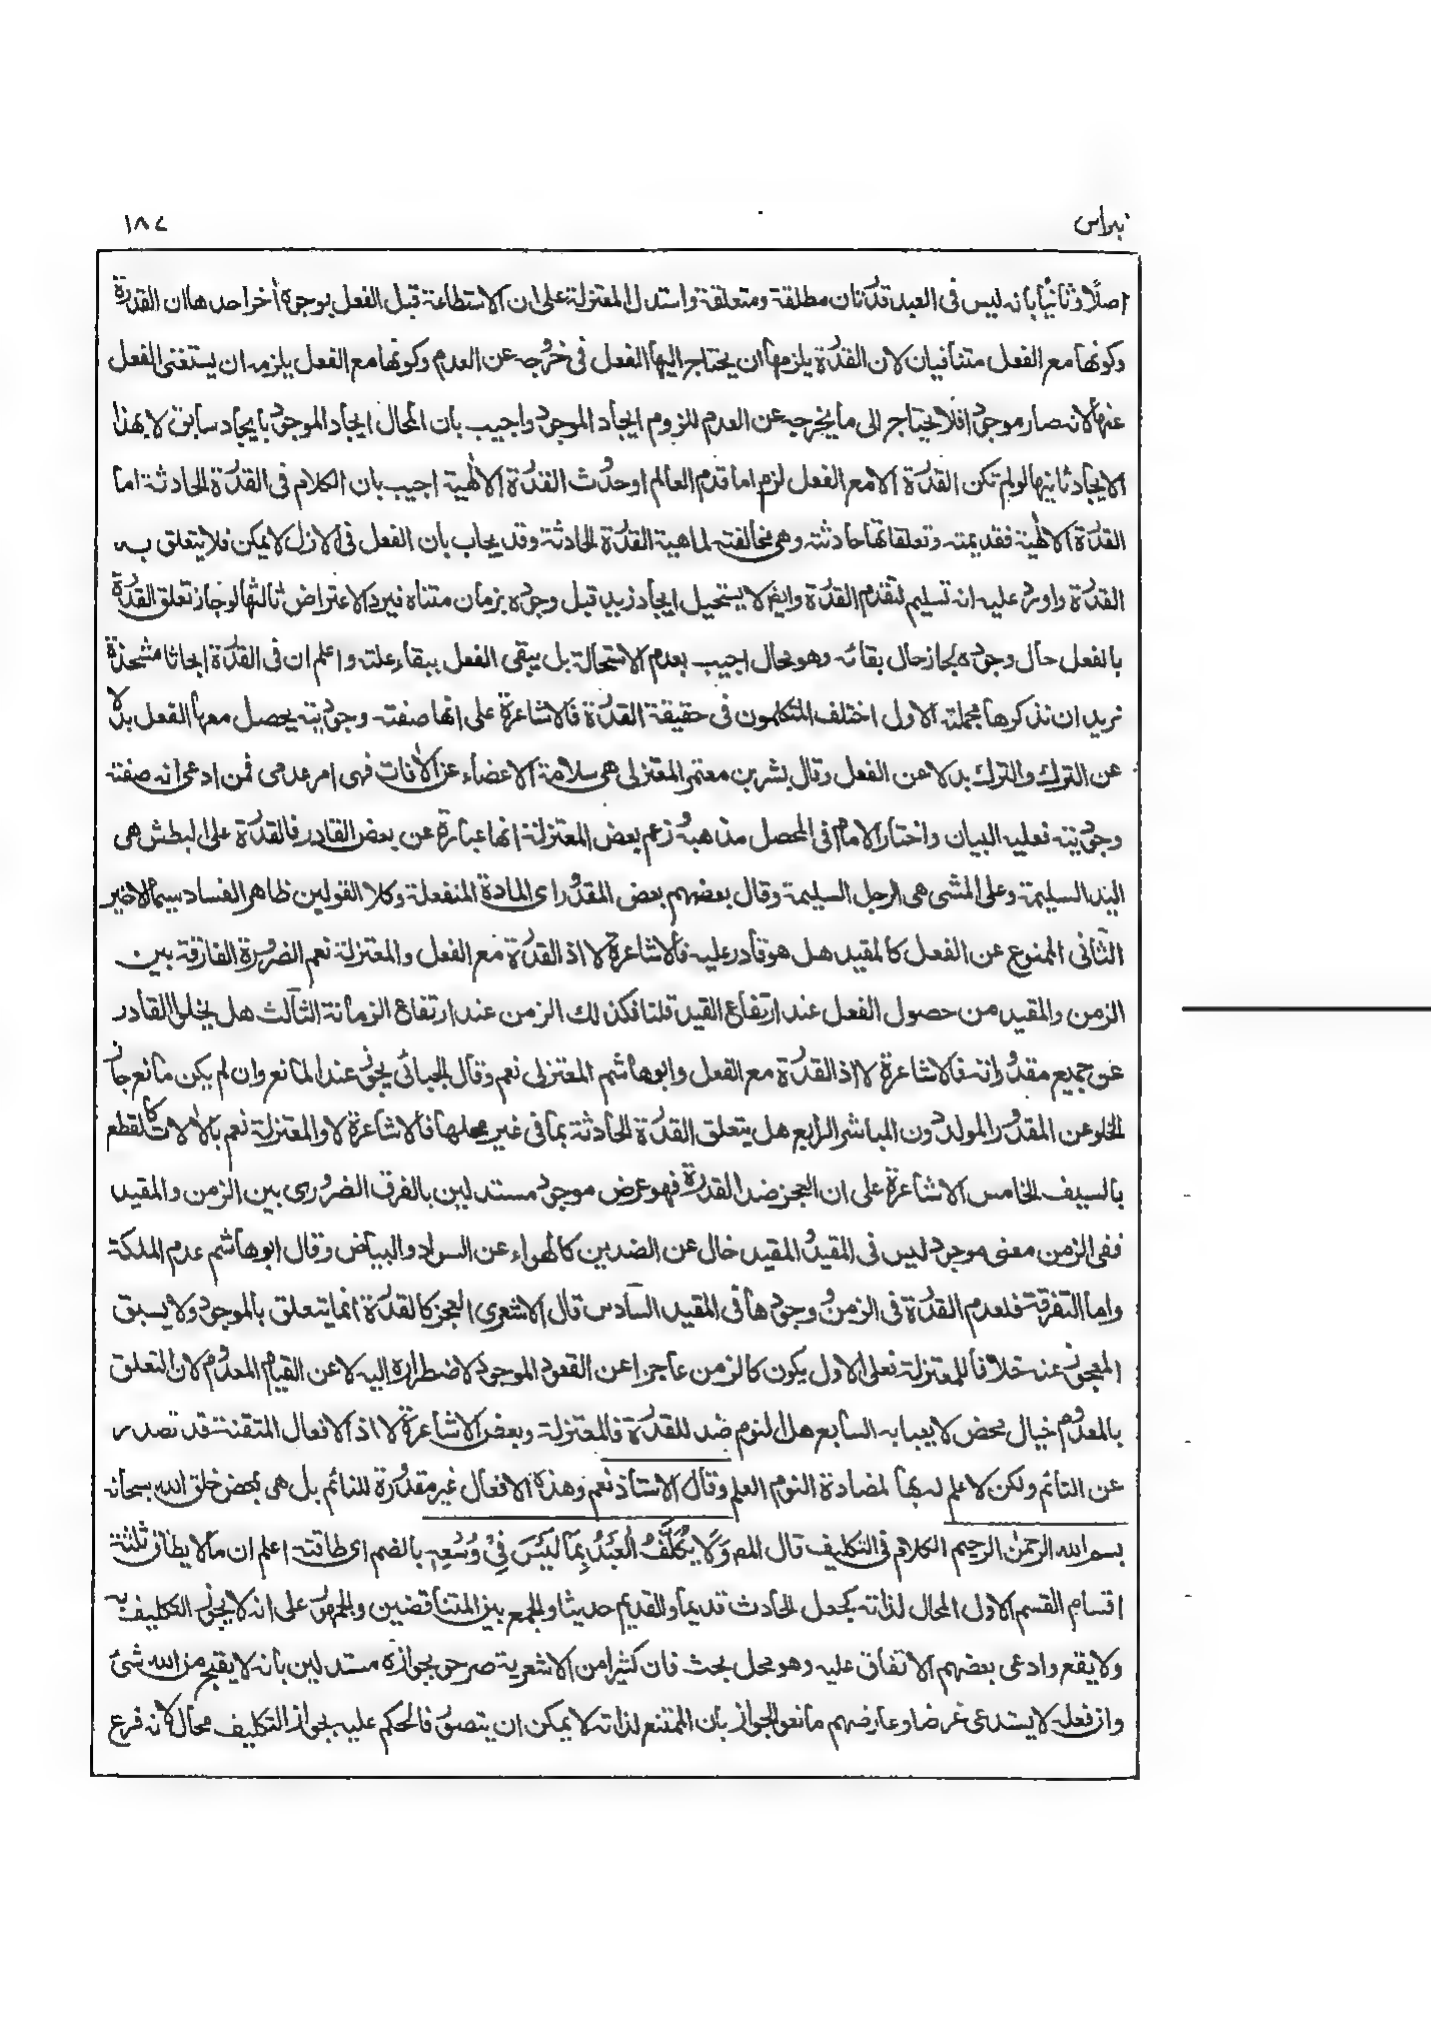 نبراس
١٨٧
اصلا وثانيا بانه ليس فى العبد قدرتان مطلقة ومتعلقة واستدل المعتزلة على ان الاستطاعة قبل الفعل بوجوه أخر احدها ان القدرة
وكونها مع الفعل متنافيان لان القدرة يلزمها ان يحتاج اليها الفعل فى خروجه عن العدم وكونها مع الفعل يلزمه ان يستغنى الفعل
عنها لانه صار موجودا فلا يحتاج الى ما يخرجه عن العدم للزوم ايجاد الموجود واجيب بان المحال ايجاد الموجود بايجاد سابق لا بهذا
الايجاد ثانيها لو لم تكن القدرة الا مع الفعل لزم اما قدم العالم او حدوث القدرة الالٰهية اجيب بان الكلام فى القدرة الحادثة اما
القدرة الالٰهية فقديمته وتعلقاتها حادثته وهى مخالفته لماهية القدرة الحادثة وقد يجاب بان الفعل فى الازل لا يمكن فلا يتعلق به
القدرة واورد عليه انه تسليم لتقدم القدرة وايضا لا يستحيل ايجاد زيد قبل وجوده بزمان متناه فيرد الاعتراض ثالثها لو جاز تعلق القدرة
بالفعل حال وجوده لجاز حال بقائه وهو محال اجيب بعدم الاستحالة بل يبقى الفعل ببقاء علته واعلم ان فى القدرة ابحاثا مشحذة
نريد ان نذكرها مجملته الاول اختلف المتكلمون فى حقيقة القدرة فالاشاعرة على انها صفته وجوديته يحصل معها الفعل بدلا
عن الترك والترك بدلا عن الفعل وقال بشر بن معتمر المعتزلى هى سلامة الاعضاء عن الآفات فهى امر عدمى فمن ادعى انه صفته
وجوديته فعليه البيان واختار الامام فى المحصل مذهبه وزعم بعض المعتزلة انها عبارة عن بعض القادر فالقدرة على البطش هى
اليد السليمة وعلى المشى هى الرجل السليمة وقال بعضهم بعض المقدور اى المادة المنفعلة وكلا القولين ظاهر الفساد سيما الاخير
الثانى الممنوع عن الفعل كالمقيد هل هو قادر عليه فالاشاعرة لا اذ القدرة مع الفعل والمعتزلة نعم للضرورة الفارقة بين
الزمن والمقيد من حصول الفعل عند ارتفاع القيد قلنا فكذلك الزمن عند ارتفاع الزمانة الثالث هل يخلو القادر
عن جميع مقدوراته فالاشاعرة لا اذ القدرة مع الفعل وابوهاشم المعتزلى نعم وقال الجبائى يجوز عند المانع وان لم يكن مانع جاز
الخلو عن المقدور المولد دون المباشر الرابع هل يتعلق القدرة الحادثة بما فى غير محلها فالاشاعرة لا والمعتزلة نعم بالآلات كالقطع
بالسيف الخامس الاشاعرة على ان العجز ضد القدرة فهو عرض موجود مستدلين بالفرق الضرورى بين الزمن والمقيد
ففى الزمن معنى موجود ليس فى المقيد والمقيد خال عن الضدين كالهواء عن السواد والبياض وقال ابوهاشم عدم الملكة
واما التفرقة فلعدم القدرة فى الزمن ووجودها فى المقيد السادس قال الاشعرى العجز كالقدرة انما يتعلق بالموجود ولا يسبق
المعجوز عنه خلافا للمعتزلة فعلى الاول يكون كالزمن عاجزا عن القعود الموجود لاضطراره اليه لا عن القيام المعدوم لان التعلق
بالمعدوم خيال محض لا يعبا به السابع هل النوم ضد للقدرة فالمعتزلة وبعض الاشاعرة لا اذ الافعال المتقنة قد تصدر
عن النائم ولكن لا علم له بها لمضادة النوم العلم وقال الاستاذ نعم وهذه الافعال غير مقدورة للنائم بل هى بمحض خلق الله سبحانه
بسم الله الرحمٰن الرحيم الكلام فى التكليف قال المص وَلَا يُكَلَّفُ الْعَبْدُ بِمَا لَيْسَ فِىْ وُسْعِهٖ بالضم اى طاقته اعلم ان ما لا يطاق ثلثة
اقسام القسم الاول المحال لذاته كجعل الحادث قديما والقديم حديثا والجمع بين المتناقضين والجمهور على انه لا يجوز التكليف به
ولا يقع وادعى بعضهم الاتفاق عليه وهو محل بحث فان كثيرا من الاشعرية صرحو بجوازه مستدلين بانه لا يقبح من الله شئ
وان فعله لا يستدعى غرضا وعارضهم مانعو الجواز بان الممتنع لذاته لا يمكن ان يتصور فالحكم عليه بجواز التكليف محال لانه فرع